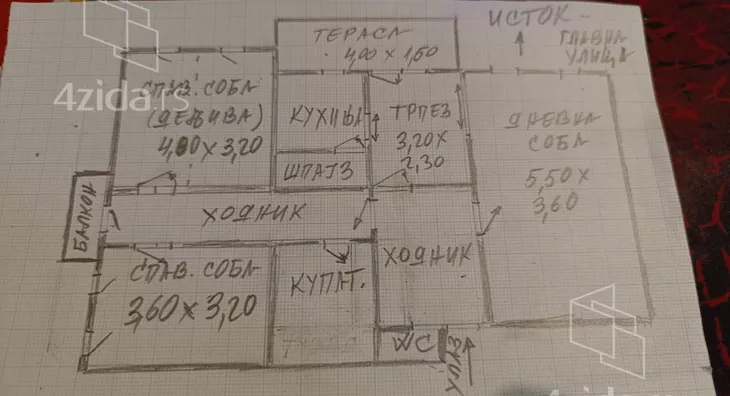 ИСТОК -
ГЛАВНА
УЛИЦА
ТЕРАСА
4,00 x 1,50
СПАВ. СОБА
(ДЕЉИВА)
4,00 x 3,20
КУХИЊА
ТРПЕЗ
3,20 x
2,30
ДНЕВНА
СОБА
5,50 x
3,60
ШПАЈЗ
БАЛКОН
ХОДНИК
ХОДНИК
СПАВ. СОБА
3,60 x 3,20
КУПАТ.
WC
УЛАЗ
4zida.rs
4zida.rs